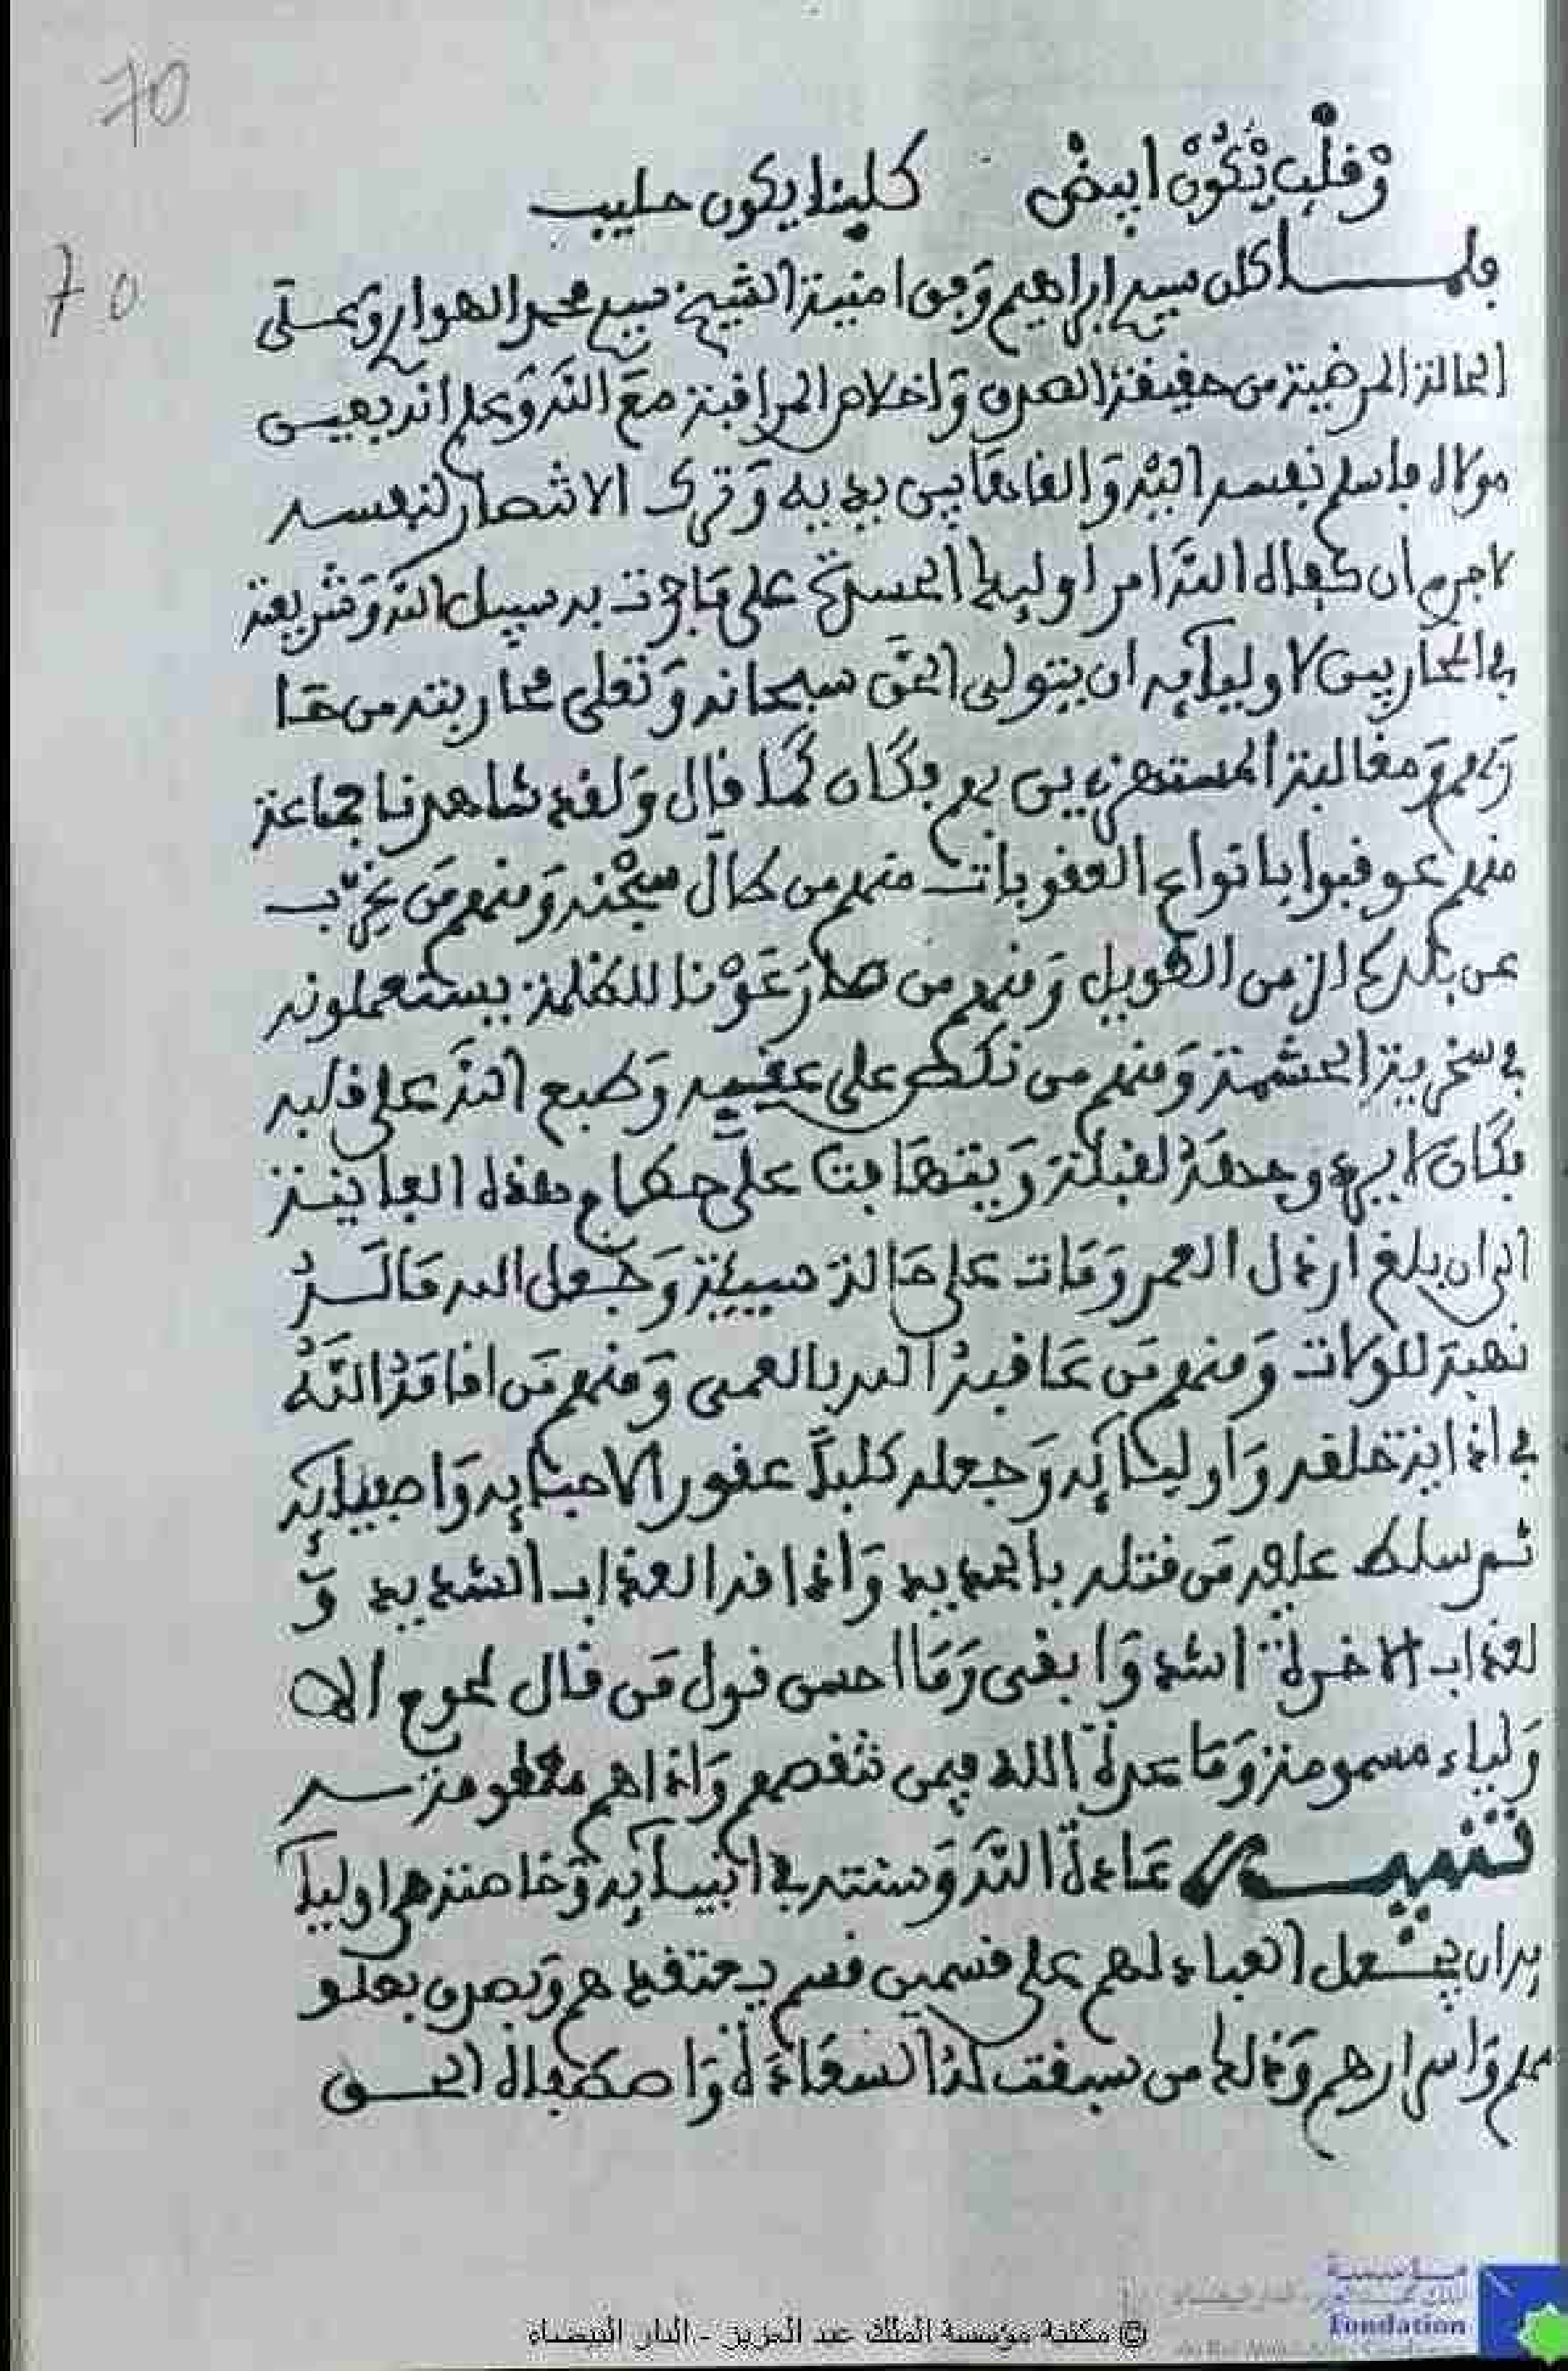 70
وقلب يكون ابيض كليندا يكون حليب
70
فلما كان سيدي ابراهيم وفق امنية الشيخ سيدي محمد الهواري وعلى
الحالة المرضية من حقيقة الصدق واخلاص المراقبة مع الله وعلم انه بعين
مولاه فاسلم نفسه اليه والقاها بين يديه وترك الانتصار لنفسه
لا جرم ان كفاه الله امر اوليك على ما جرت به سبيل الله وشريعته
في المحاربين لاوليآيه ان يتولى الحق سبحانه وتعلى محاربته من
ومغالبة المستهزءين بهم فكان كما قال ولقد شاهدنا جماعة
منهم عوقبوا بانواع العقوبات منهم من طال سجنه ومنهم من يغرب
عن بلده الزمن الطويل ومنهم من صار عونا للظلمة يستعملونه
في سخرية الحشمة ومنهم من نكص على عقبيه وطبع الله على قلبه
فكان لا يرى وجهة لقبلة ويتهافت على حطام هذه الفانية
الى ان بلغ ارذل العمر ومات على حالة سيية وجعل الله ماله
نهبة للولات ومنهم من عاقبه الله بالعمى ومنهم من اقامه الله
في اذاية خلقه واوليآيه وجعله كلبا عقورا لاحبايه واصفيايه
ثم سلط عليه من قتله بالحديد واذاقه العذاب الشديد و
لعذاب الاخرة اشد وابقى وما احسن قول من قال لحوم الا
ولياء مسمومة وما عدة الله فيمن تنقصهم واذاهم معلومة
تنبيه عادة الله وسنته في انبيآيه وخاصة اوليآ
يه ان يجعل العباد لهم على قسمين قسم يعتقدهم ويصدق بعلو
مهم واسرارهم وذلك من سبقت له السعادة واصطفاه الحق
© مكتبة مؤسسة الملك عبد العزيز - الدار البيضاء
مؤسسة
Fondation